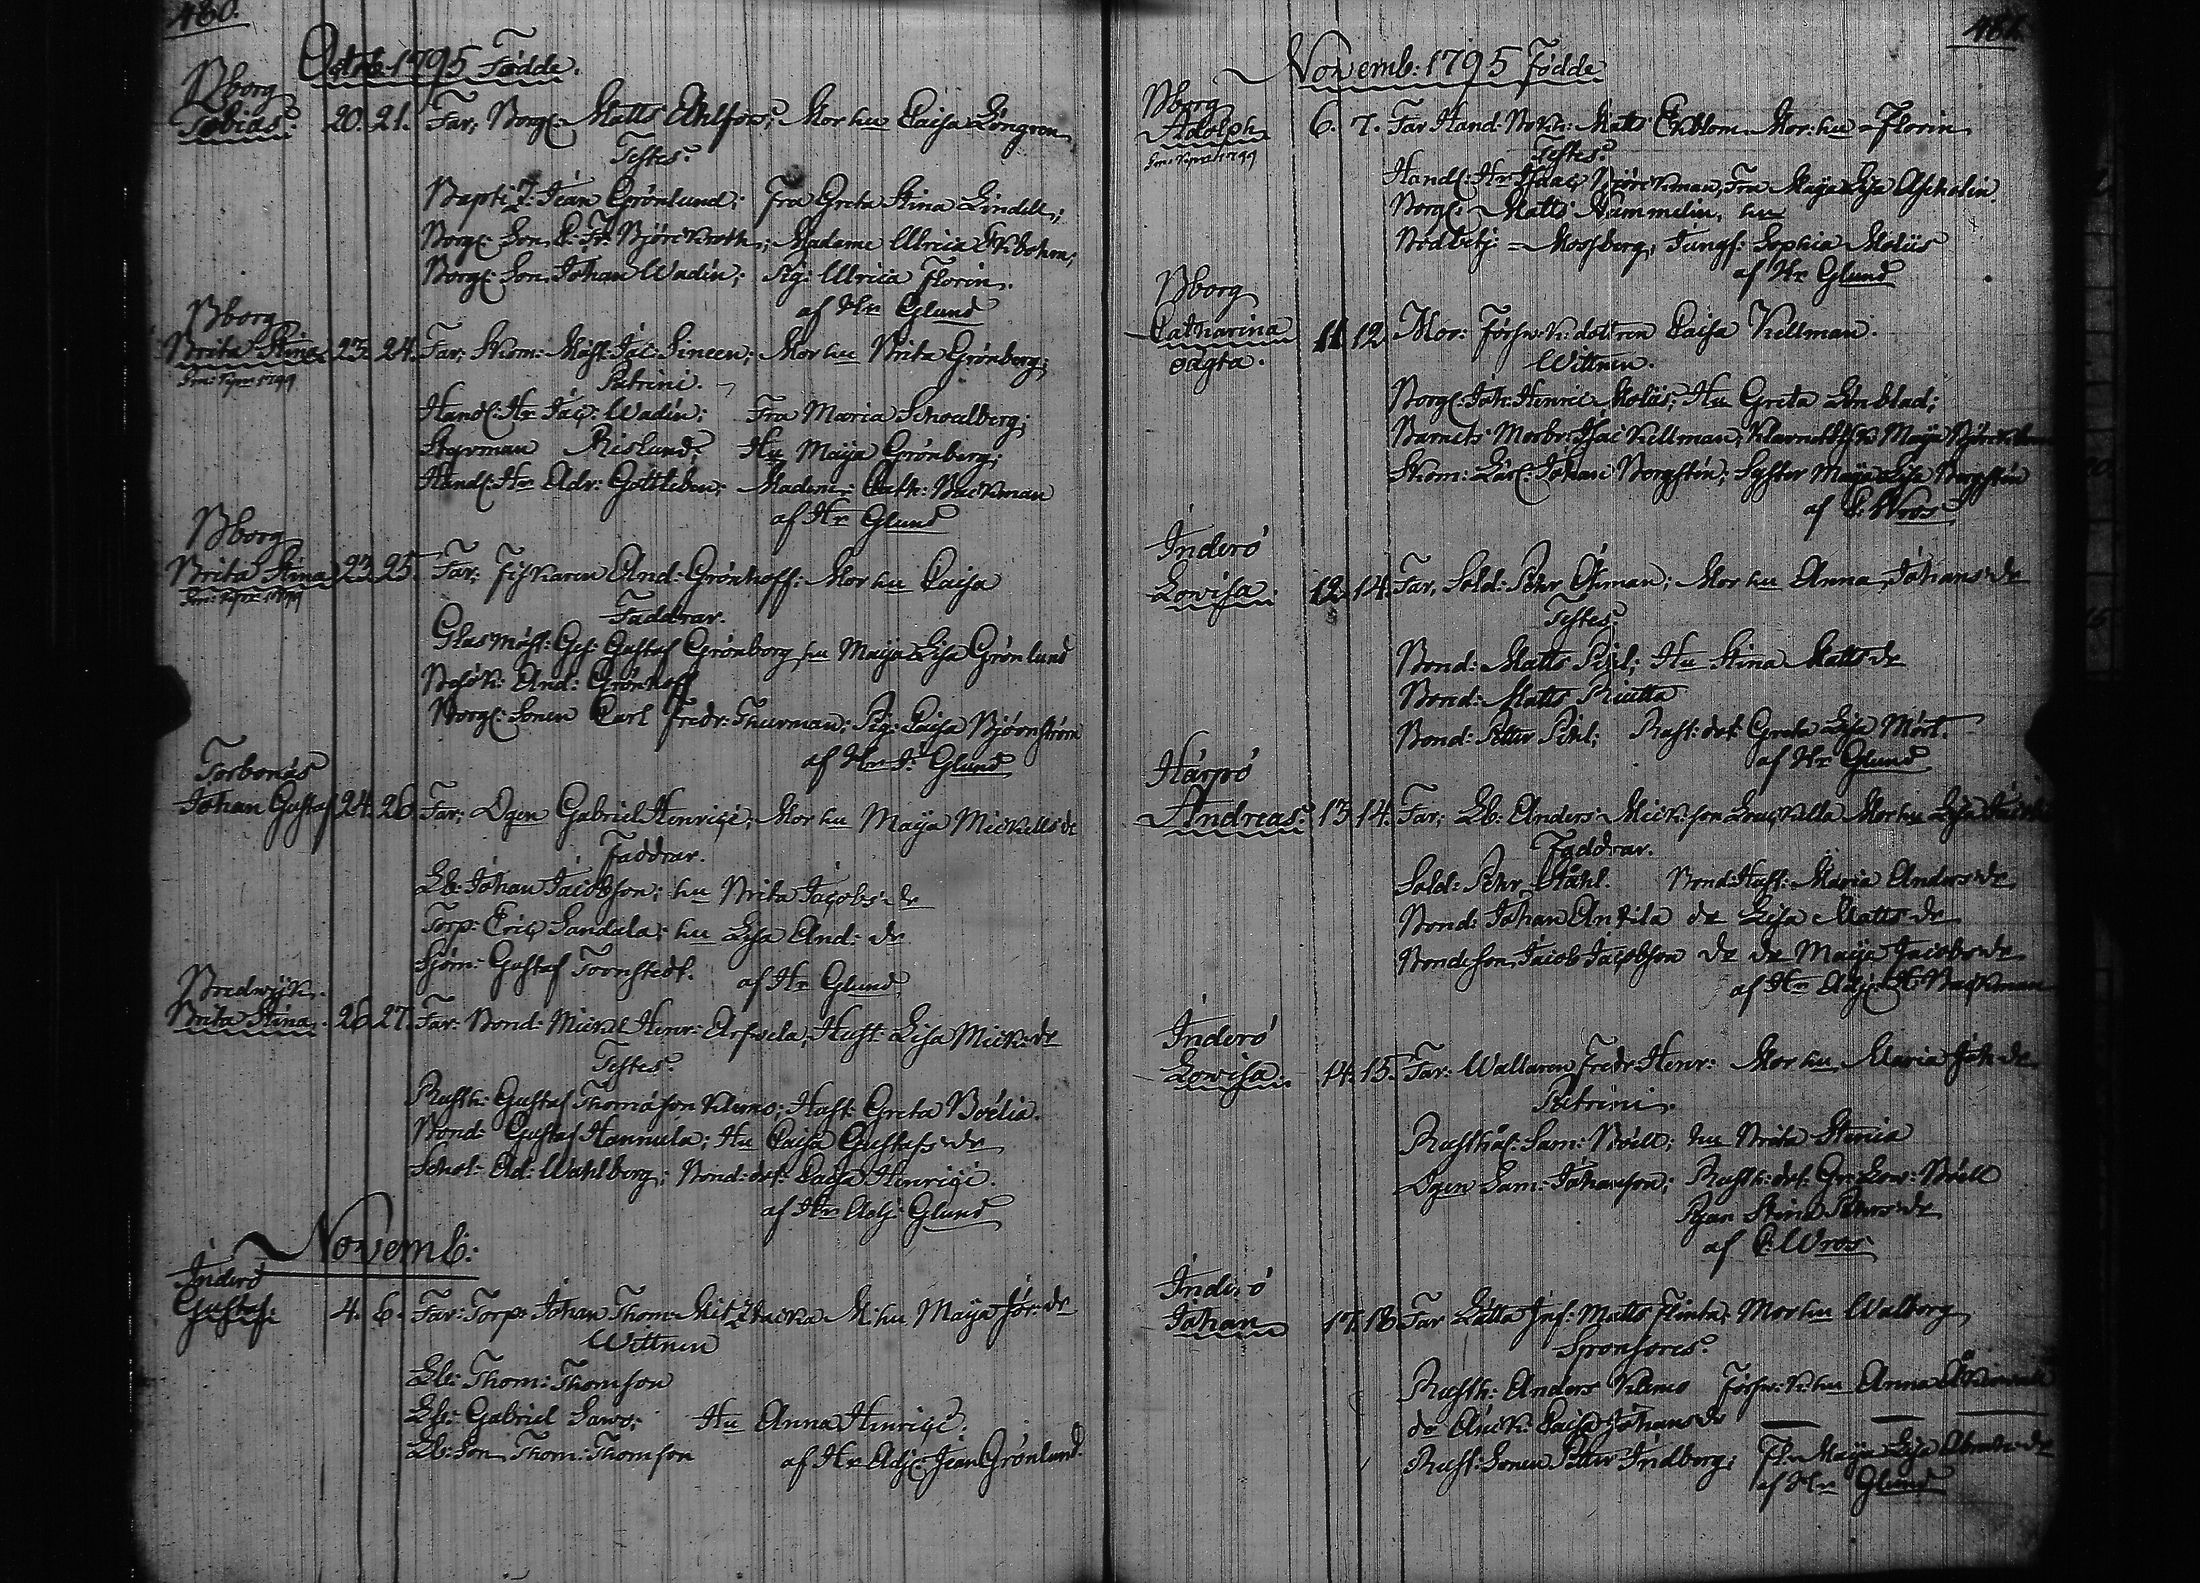 480.
Octob: 1795 Födde.
Bborg
Tobias. 20. 21. Far, Borg: Matts Ahlfors; Mor hu Caisa Löngren
Testes:
Jean Grönlund; Fru Greta Stina Lindell;
Borg: Son Björckroth; Madame Ulrica Ekbohm;
Borg: Son Johan Wadén; Pig: Ulrica Florin.
af Hr Glund
Bborg
Brita Stina 23. 24. Far, Skom: Mäst: Jac: Sineen; Mor hu Brita Grönberg;
Patrini.
Handl: Hr Jac: Wadén; Fru Maria Schoulberg;
Styrman Rislund Hu Maija Grönberg;
Handl: Hr Adr: Gottleben; Madem: Cath: Backman
af Hr Glund
Bborg
Brita Stina 23. 25. Far, Fiskaren And: Grönhoff: Mor hu Caisa
Faddrar.
Glasmäst: Ges: Gustaf Grönborg hu Maija Lisa Grönlund
And: Grönhoff
Borg: Sonen Carl Fredr: Thurman; Pig: Caisa Björnström
af Hr J: Glund
Torbonäs
Johan Gustaf 24. 26. Far, Ogen Gabriel Henrici; Mor hu Maija Mickells dr
Faddrar.
Lb: Johan Jacobson; hu Brita Jacobs dr
Torp: Eric Sandala; hu Lisa And: dr
Sjöm: Gustaf Toornstedt. af Hr Glund
Bredwijk.
Brita Stina. 26. 27. Far: Bond: Mickel Henr: Arfvela; Hust: Lisa Mick: dr
Testes:
Rusth: Gustaf Thomason Klemo; Hust: Greta Boëlia.
Bond: Gustaf Hannula; Hu Caisa Gustafs dr
Schol: Ad: Wahlberg; Bond: dot: Caisa Henrici.
af Hr Adj: Glund
Novemb:
Inderö
Gustaf: 4. 6. Far: Torp: Johan Thom: M: hu Maija Jör: dr
Wittnen
Lb: Thom: Thomson
Lb: Gabriel Sawo; Hu Anna Henrici:
Lb: Son Thom: Thomson af Hr Adj: Jean Grönlund.
481.
Novemb: 1795 Födde
Bborg
Adolph 6. 7. Far Hand: Bokh: Matts Ekblom Mor: hu Florin
Testes:
Handl: Hr Isaac Björckman, Fru Maija Lisa Aschelin.
Borg: Matts Hammelin, hu
Mossberg; Jungf: Sophia Moliis
af Hr Glund
Bborg
Catharina 11 12 Mor: Försw: k: dottren Caisa Kellman.
oägta. Wittnen.
Borg: Joh: Henric Moliis; Hu Greta Lönblad;
Barnets Morbr: Isac Kellman; Maija
Skom: Lär: Johan Borgstén; Syster Maija Lisa Borgstén
af C: Wros
Inderö
Lowisa. 12. 14. Far, Sold: Pehr Öhman; Mor hu Anna Johans dr
Testes:
Bond: Matts Pihl; Hu Stina Matts dr
Bond: Matts Riutta
Bond: Petter Pihl; Rust: dot: Greta Lisa Mört.
af Hr Glund
Härpö
Andreas: 13. 14. Far, Lb: Anders Mickson Mor hu Lisa
Faddrar.
Sold: Pehr Ståhl. Bond: Hust: Maria Anders dr
Bond: Johan Antila do Lisa Matts dr
Bondeson Jacob Jacobson do do Maija Jacobs dr
af Hr Adj: Backman
Inderö
Lowisa. 14. 15. Far: Wallaren Fredr Henr: Mor hu Maria Joh: dr
Patrini.
Rusthål: Sam: Böell; hu Brita Stenia
Ogen Sam: Johanson; Rusth: dot: Gr: Low: Böell
Pigan Stina Pehrs dr
af C: Wros
Inderö
Johan 17. 18. Far Lätta Inf: Matts Flinta; Mor hu Walborg
Sponsores:
Rusth: Anders Klemo Försw: k: hu Anna
do Caisa Johans dr
Rust: Sonen Petter Fridborg; Maija Lisa dr
af Hr Glund